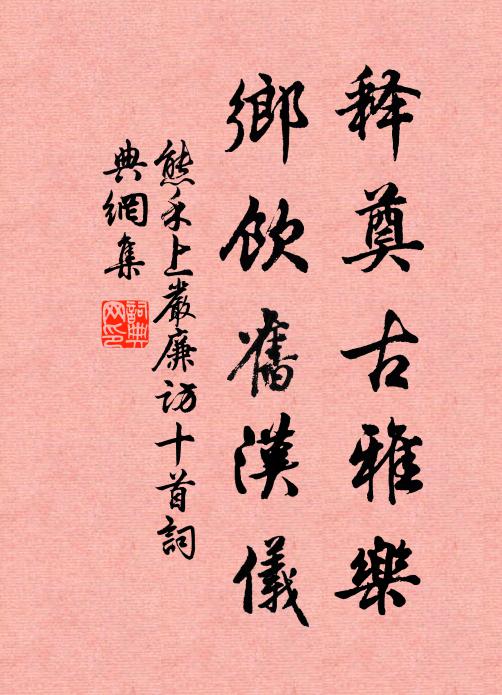 释奠古雅樂
鄉飲舊漢儀
熊禾上嚴廉訪十首詞
典網集
詞典网印